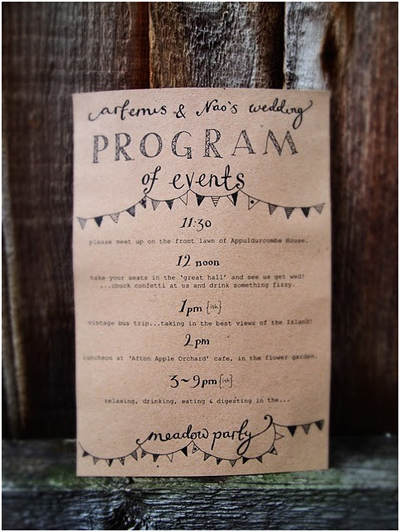 artemis & Nao's wedding
PROGRAM
of events
11:30
please meet up on the front lawn of Appuldurcombe House.
12 noon
take your seats in the 'great hall' and see us get wed!
...chuck confetti at us and drink something fizzy.
1pm {ish}
vintage bus trip...taking in the best views of the Island!
2pm
luncheon at 'Afton Apple Orchard' cafe, in the flower garden.
3~9pm {ish}
relaxing, drinking, eating & digesting in the...
meadow party